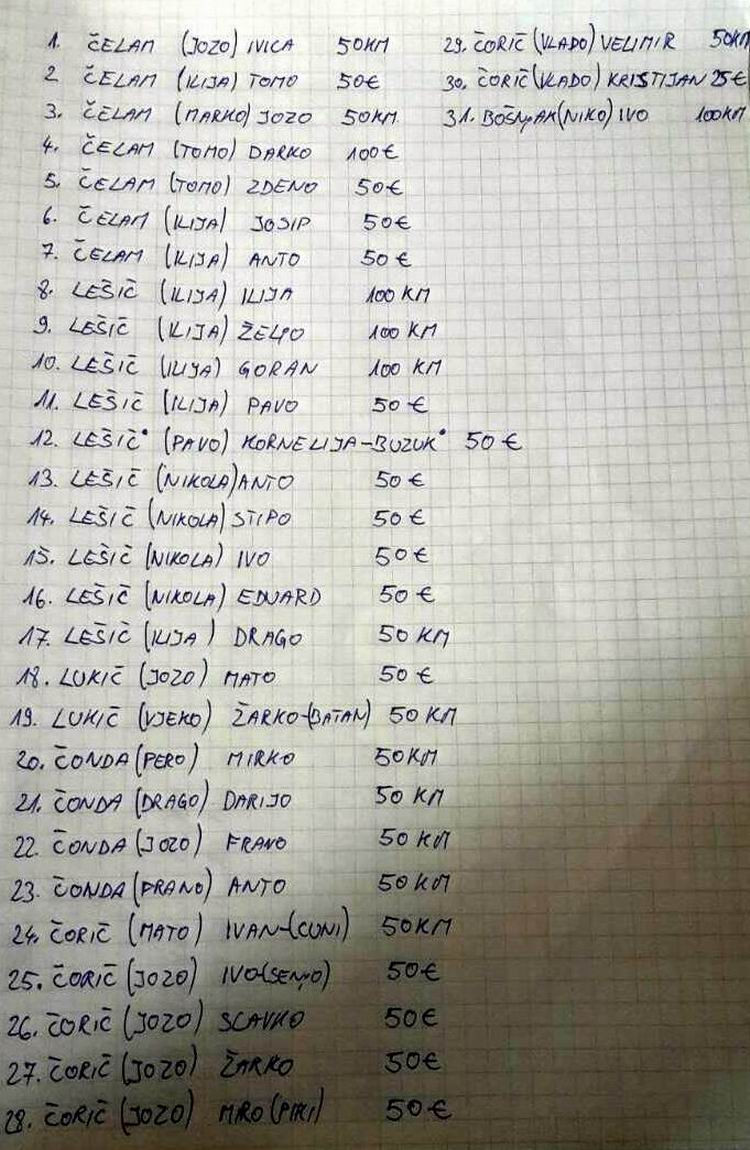 1. ČELAM (JOZO) IVICA 50KM
2 ČELAM (ILIJA) TOMO 50€
3. ČELAM (MARKO) JOZO 50KM
4. ČELAM (TOMO) DARKO 100€
5. ČELAM (TOMO) ZDENO 50€
6. ČELAM (ILIJA) JOSIP 50€
7. ČELAM (ILIJA) ANTO 50€
8. LEŠIČ (ILIJA) ILIJA 100 KM
9. LEŠIČ (ILIJA) ŽELJO 100 KM
10. LEŠIČ (ILIJA) GORAN 100 KM
11. LEŠIČ (ILIJA) PAVO 50€
12. LEŠIČ (PAVO) KORNELIJA-BUZUK 50€
13. LEŠIČ (NIKOLA) ANTO 50€
14. LEŠIČ (NIKOLA) STIPO 50€
15. LEŠIČ (NIKOLA) IVO 50€
16. LEŠIČ (NIKOLA) EDUARD 50€
17. LEŠIČ (ILIJA) DRAGO 50 KM
18. LUKIČ (JOZO) MATO 50€
19. LUKIČ (VJEKO) ŽARKO-(BATAN) 50 KM
20. ČONDA (PERO) MIRKO 50KM
21. ČONDA (DRAGO) DARIJO 50 KM
22. ČONDA (JOZO) FRANO 50 KM
23. ČONDA (FRANO) ANTO 50 KM
24. ČORIČ (MATO) IVAN-(CUNI) 50KM
25. ČORIČ (JOZO) IVO-(SENJO) 50€
26. ČORIČ (JOZO) SLAVKO 50€
27. ČORIČ (JOZO) ŽARKO 50€
28. ČORIČ (JOZO) MRO (PIKI) 50€
29. ČORIČ (VLADO) VELIMIR 50KM
30. ČORIČ (VLADO) KRISTIJAN 25€
31. BOŠNJAK (NIKO) IVO 100KM